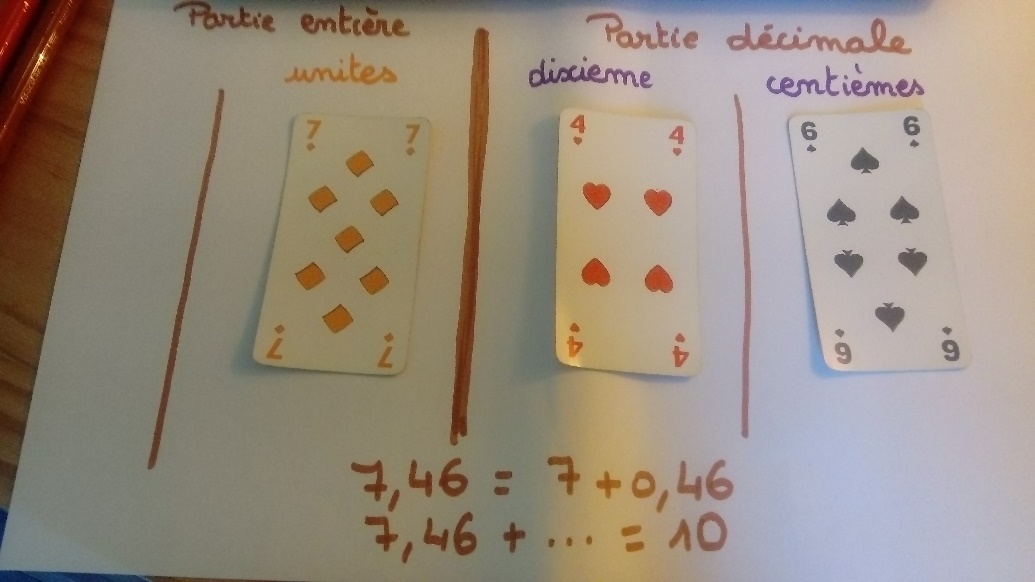 Partie entière
Partie décimale
unites
dixieme
centièmes
7 7
4 4
6 6
7 7
4 4
6 6
7,46 = 7 + 0,46
7,46 + ... = 10